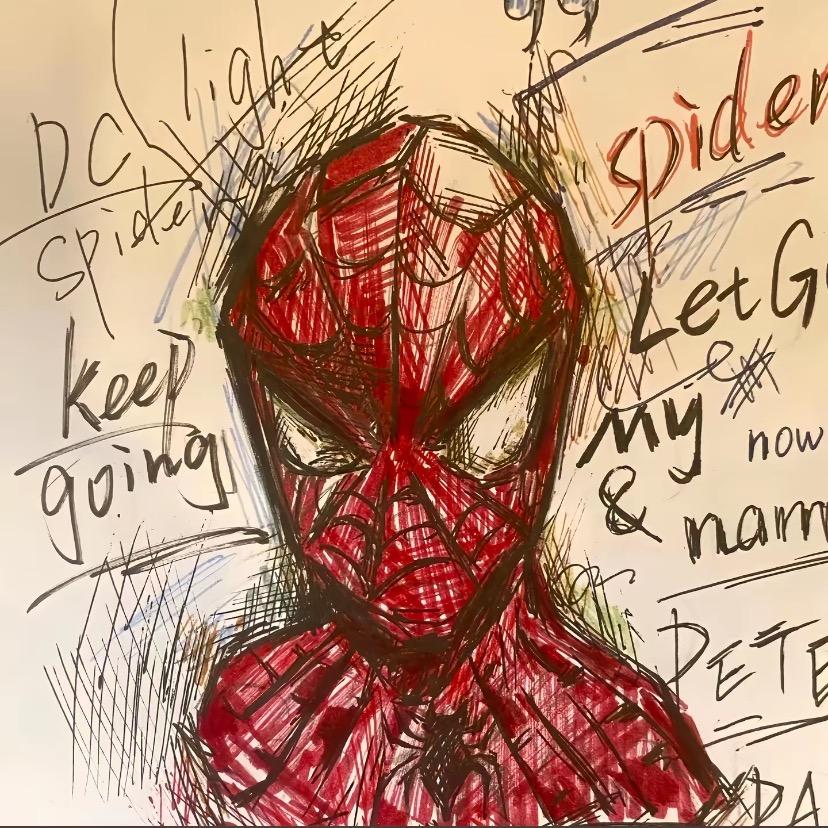 light
DC
spider
keep
going
spider
Let G
My
now
& nam
PETE
PA